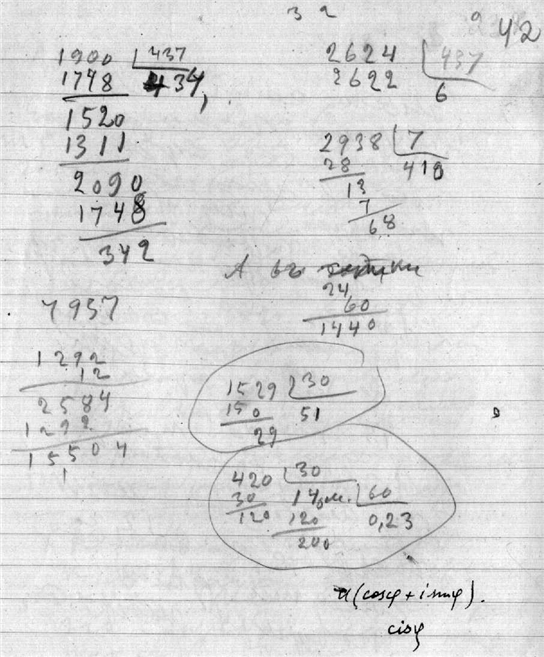 3 2
1900 437
1748 434,
1520
1311
2090
1748
342
42
2624 437
2622 6
2938 7
28 418
13
7
68
24
60
1440
1957
1292
12
2584
1292
15504
1
1529 30
150 51
29
420 30
30 14 60
120 120 0,23
200
(cosφ + i sinφ).
cisφ